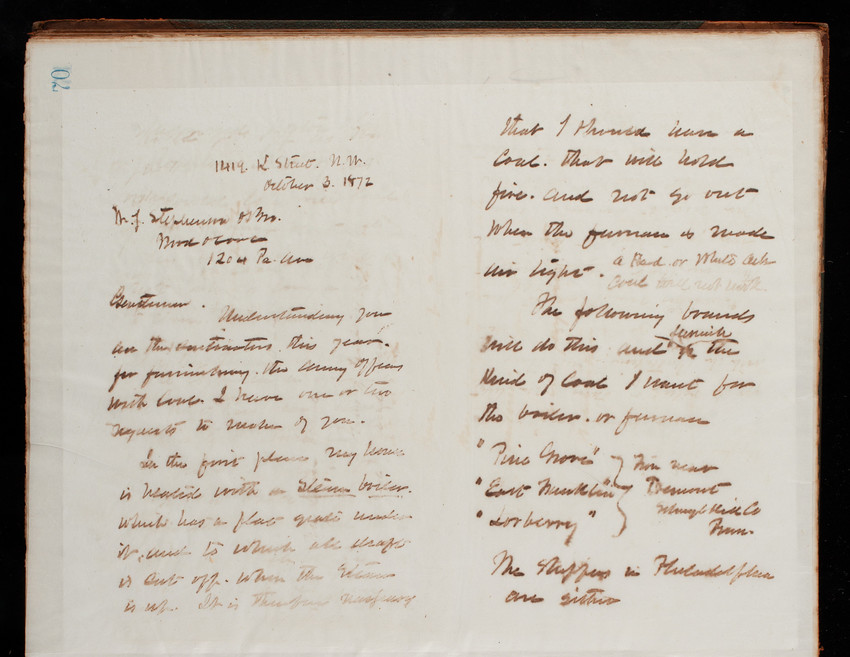 202
1419 K Street. N.W.
October 3. 1872
W. J. Stephenson & Bro.
Wood & Coal
1204 Pa. Ave
Gentlemen.
Understanding you
are the contractors this year.
for furnishing. the Army Officers
with Coal. I have one or two
requests to make of you.
In the first place my house
is heated with a Steam boiler.
which has a flat grate under
it, and to which all draft
is cut off. when the Steam
is up. It is therefore necessary
that I should have a
Coal. that will hold
fire. and not go out
when the furnace is made
air tight. a Red. or White Ash
Coal will not work.
The following brands
will do this and furnish the
Kind of Coal I want for
the boiler. or furnace
"Pine Grove"
"East Franklin"
"Lorberry"
from near
Tremont
Schuylkill Co
Penn.
The Shippers in Philadelphia
are either